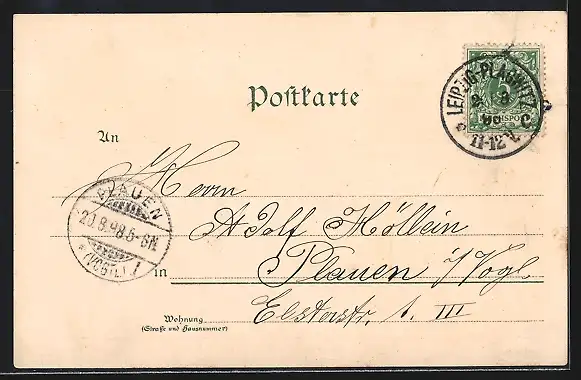 Postkarte
LEIPZIG-PLAGWITZ
8
98
11-12 V.
REICHSPOST
An
Herrn
PLAUEN
20.8.98.
(VOGTL.)
Adolf Höllein
in Plauen i/Vogl.
Wohnung
(Straße und Hausnummer)
Elsterstr. 1. III